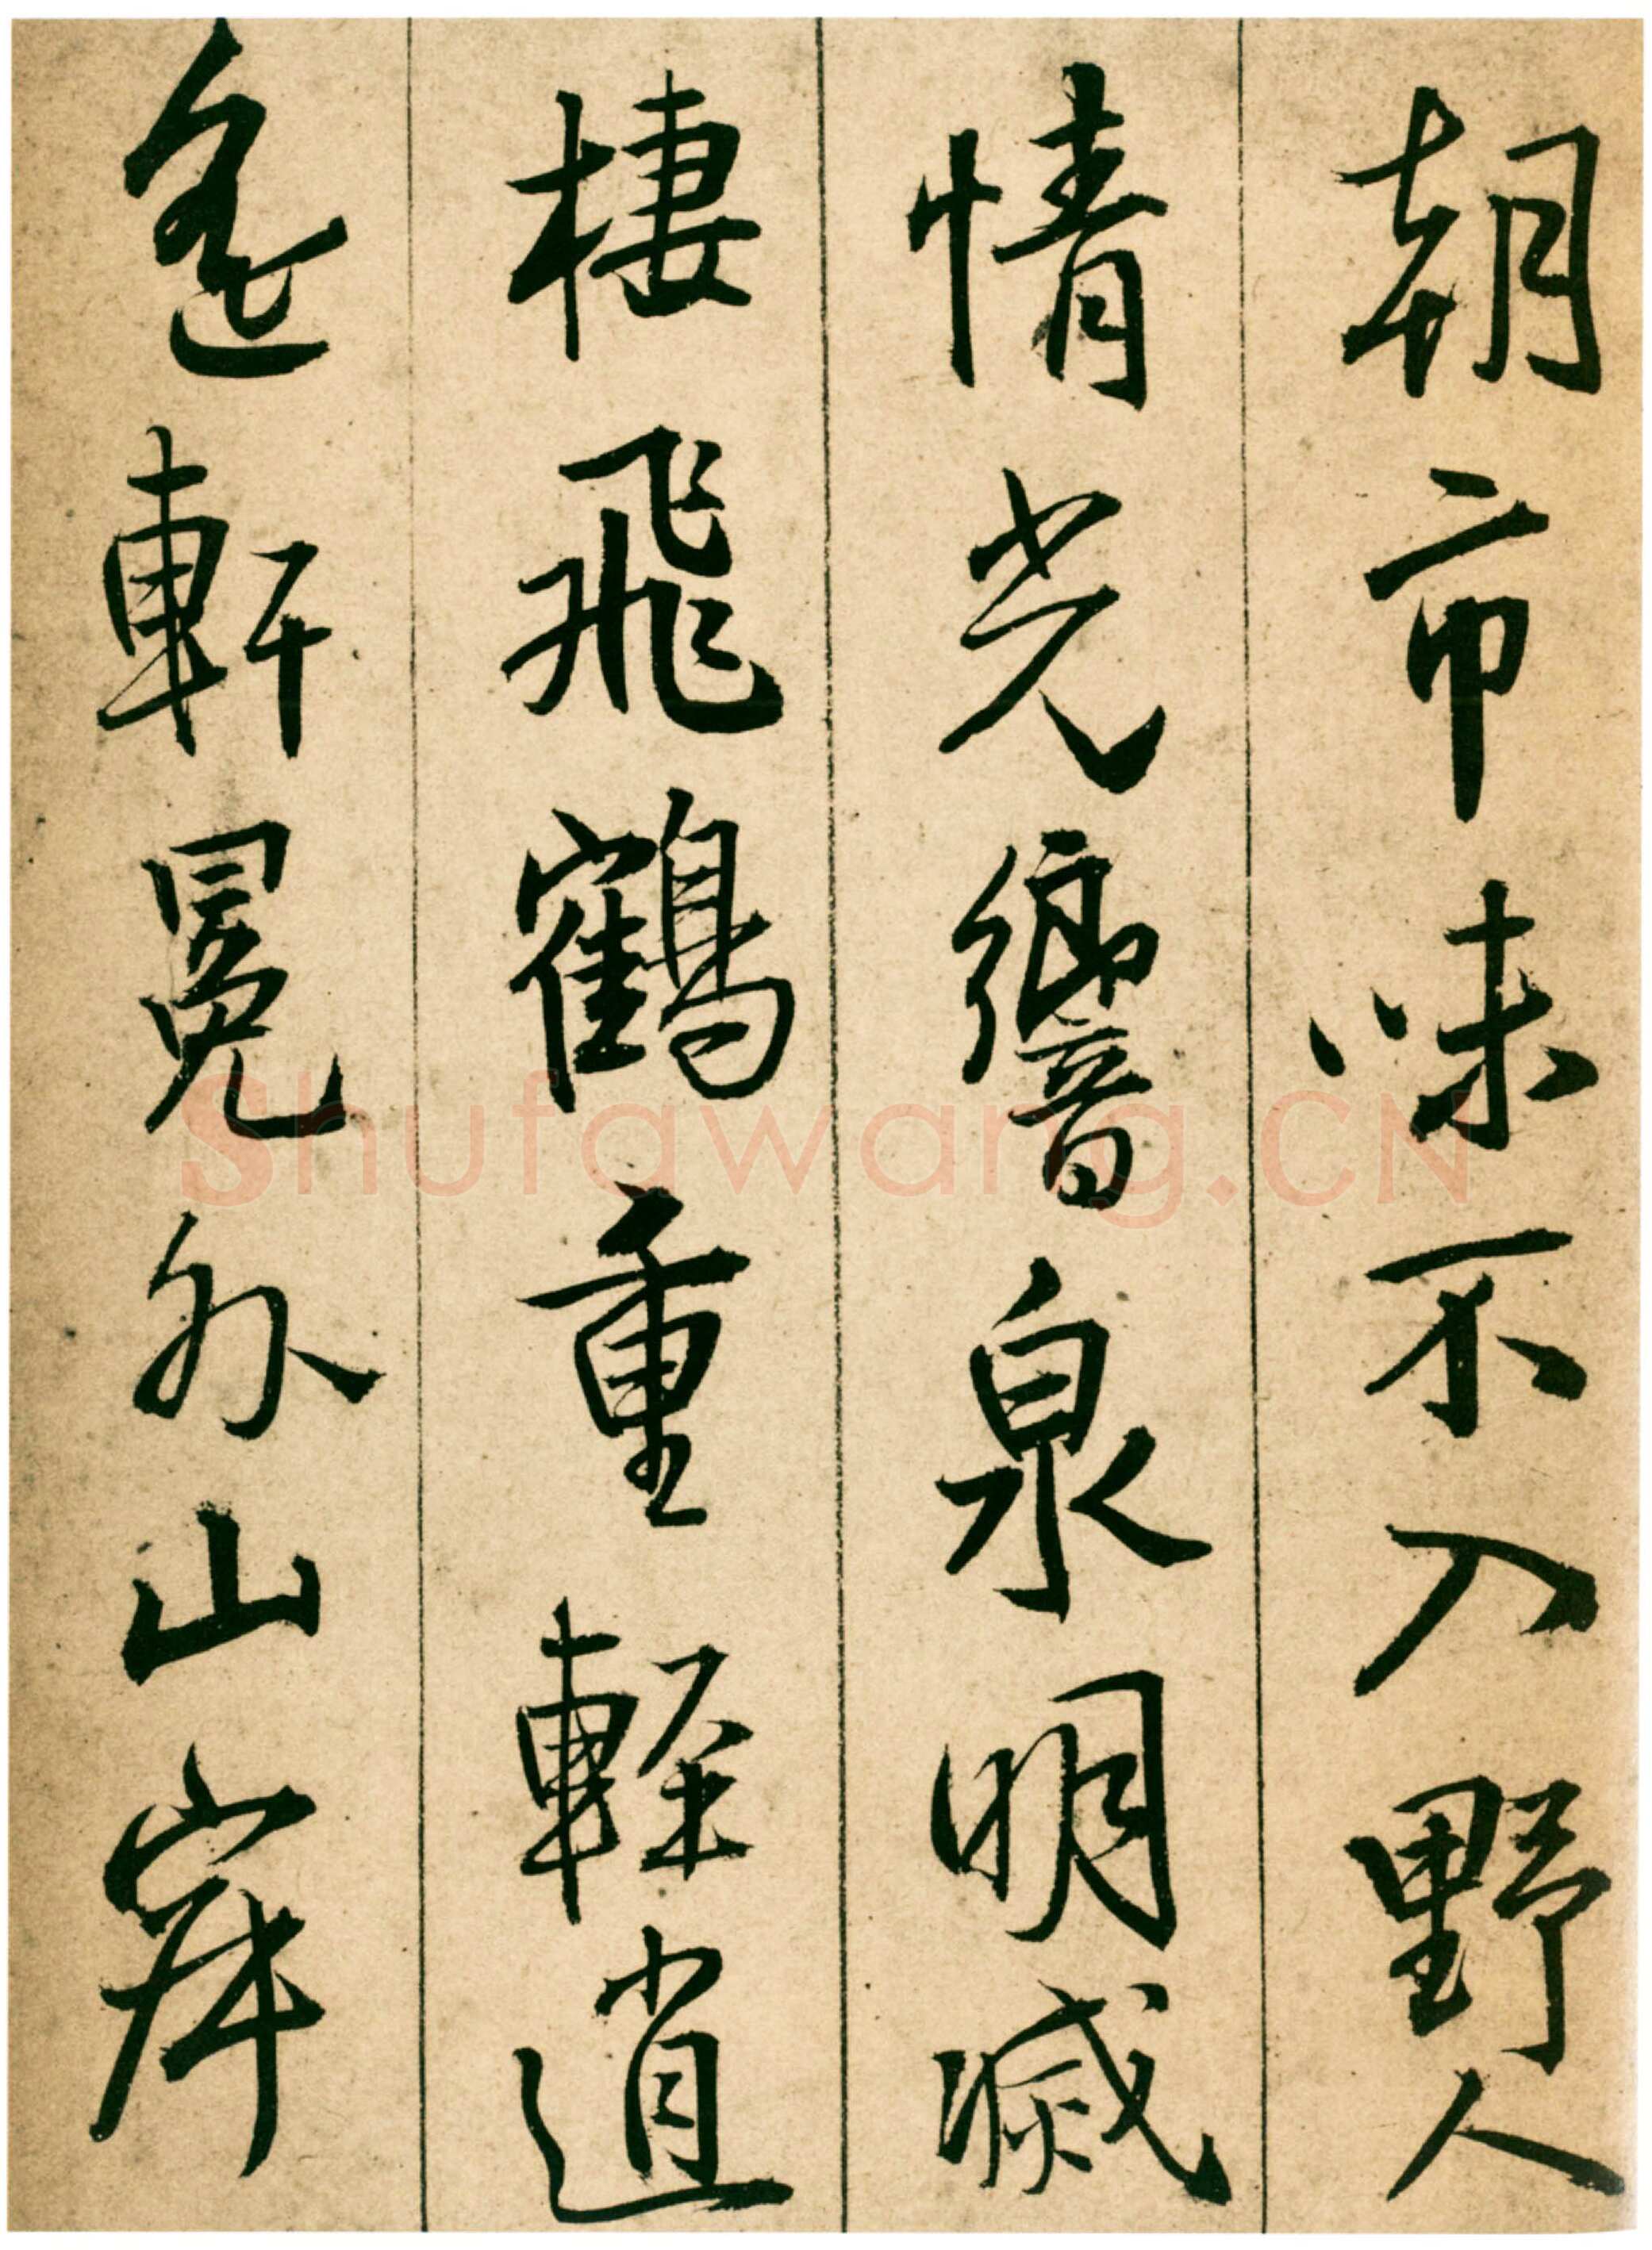 朝市味不入野人
情光響泉明滅
棲飛鶴重輕逍
遙軒冕外山岸
Shufawang.CN